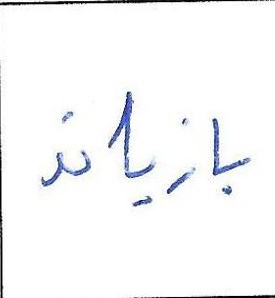 بازیاند